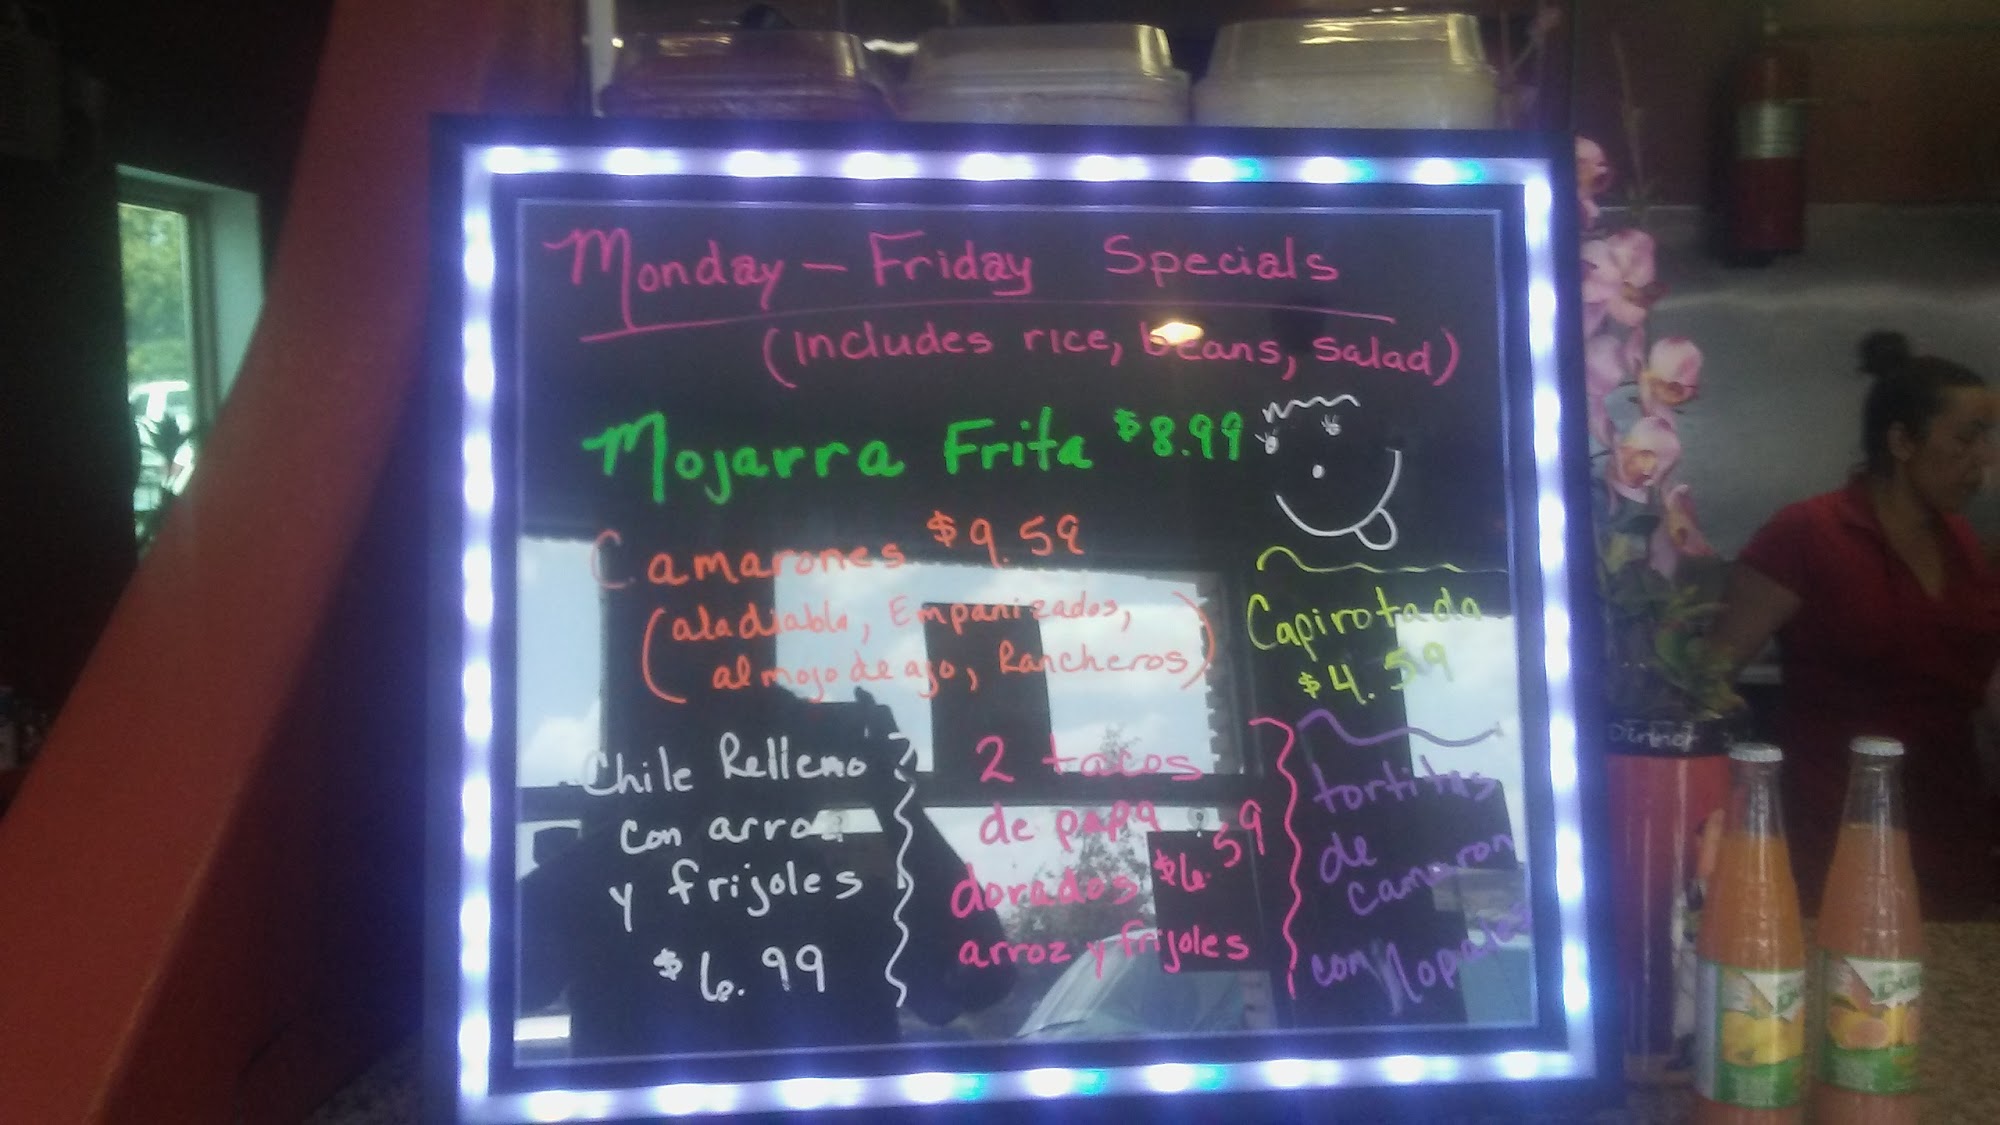 Monday - Friday Specials
(includes rice, beans, salad)
Mojarra Frita $8.99
Camarones $9.59
(ala diabla, Empanizados,
al mojo de ajo, Rancheros)
Capirotada
$4.59
Chile Relleno
con arroz
y frijoles
$6.99
2 tacos
de papa
dorados $6.59
arroz y frijoles
tortitas
de
camaron
con Nopales
Dinner